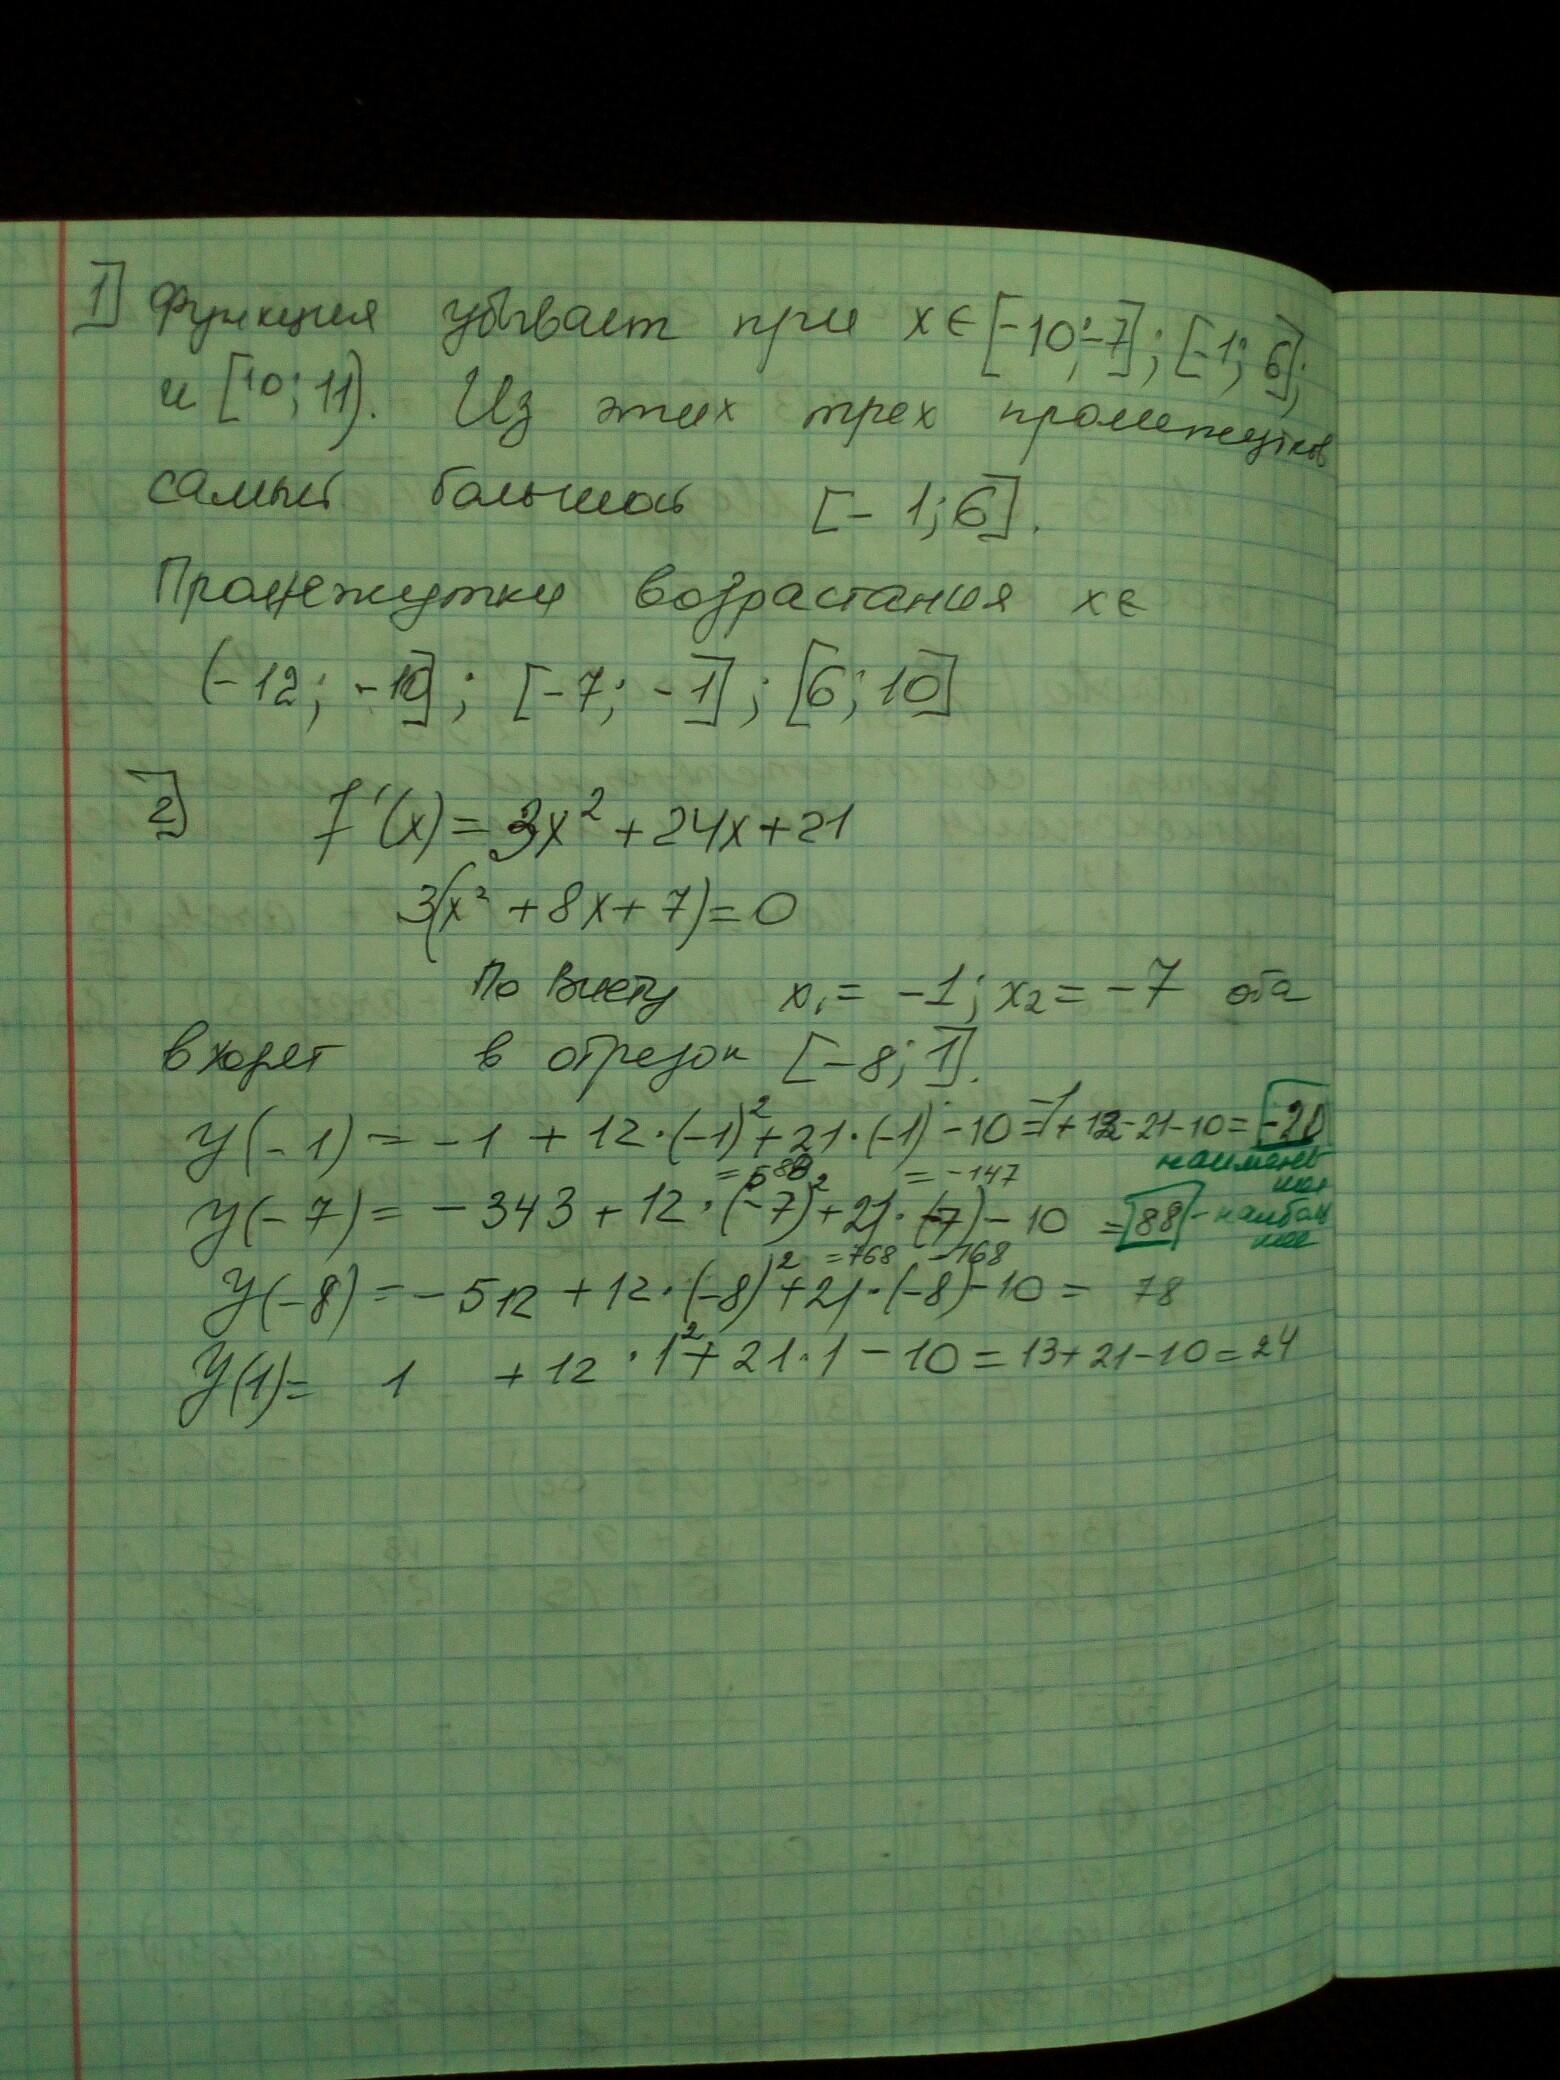 1] Функция убывает при x ∈ [-10; -7]; [-1; 6];
и [10; 11). Из этих трех промежутков
самый большой [-1; 6].
Промежутки возрастания x ∈
(-12; -10]; [-7; -1]; [6; 10]
2] f'(x) = 3x² + 24x + 21
3(x² + 8x + 7) = 0
По Виету x₁ = -1; x₂ = -7 оба
входят в отрезок [-8; 1].
y(-1) = -1 + 12·(-1)² + 21·(-1) - 10 = -1 + 12 - 21 - 10 = -20
наименьшая
=588 = -147
y(-7) = -343 + 12·(-7)² + 21·(-7) - 10 = 88 - наибольшее
=768 -168
y(-8) = -512 + 12·(-8)² + 21·(-8) - 10 = 78
y(1) = 1 + 12·1² + 21·1 - 10 = 13 + 21 - 10 = 24